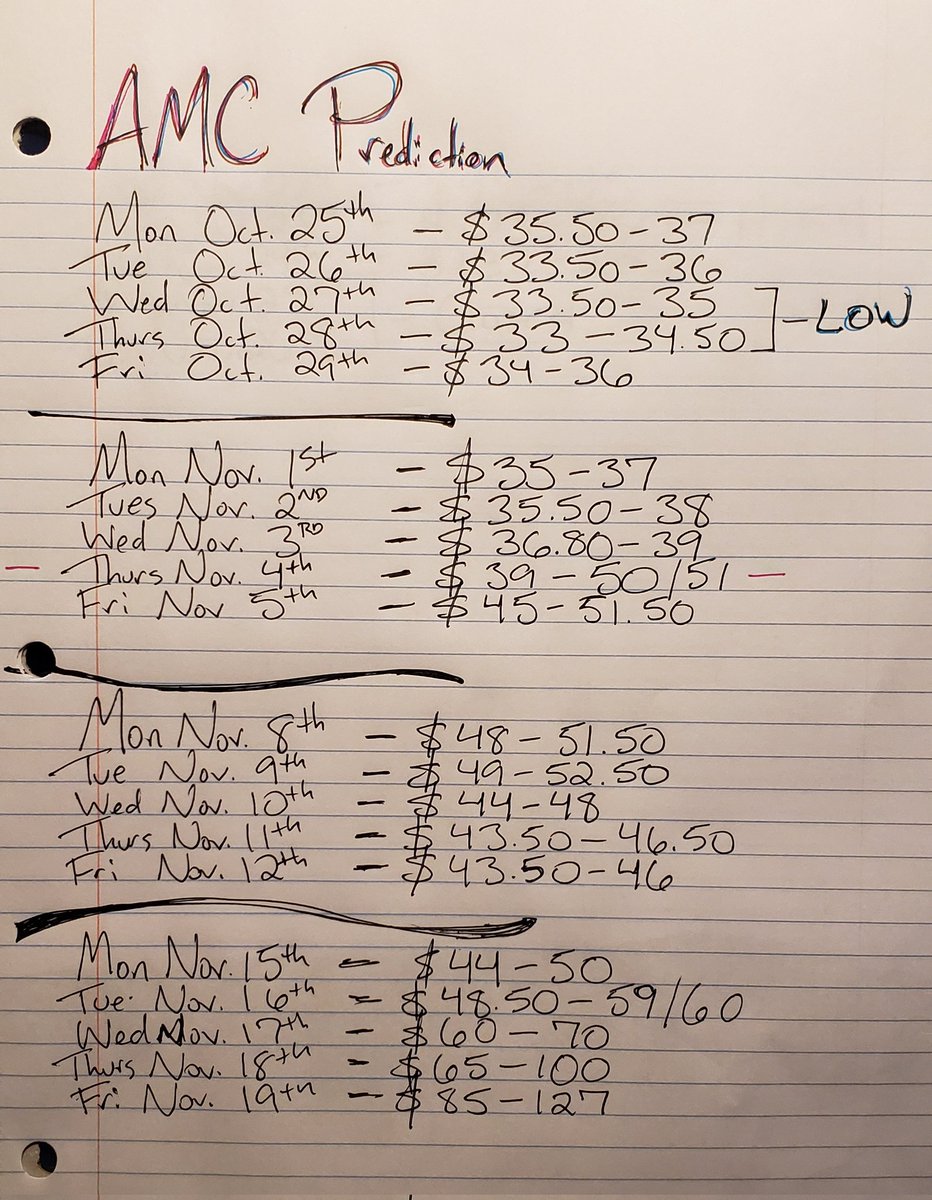 AMC Prediction
Mon Oct. 25th - $35.50-37
Tue Oct. 26th - $33.50-36
Wed Oct. 27th - $33.50-35
Thurs Oct. 28th - $33-34.50 ]-LOW
Fri Oct. 29th - $34-36
Mon Nov. 1st - $35-37
Tues Nov. 2ND - $35.50-38
Wed Nov. 3RD - $36.80-39
- Thurs Nov. 4th - $39-50/51 -
Fri Nov 5th - $45-51.50
Mon Nov. 8th - $48-51.50
Tue Nov. 9th - $49-52.50
Wed Nov. 10th - $44-48
Thurs Nov. 11th - $43.50-46.50
Fri Nov. 12th - $43.50-46
Mon Nov. 15th - $44-50
Tue. Nov. 16th - $48.50-59/60
Wed Nov. 17th - $60-70
Thurs Nov. 18th - $65-100
Fri Nov. 19th - $85-127